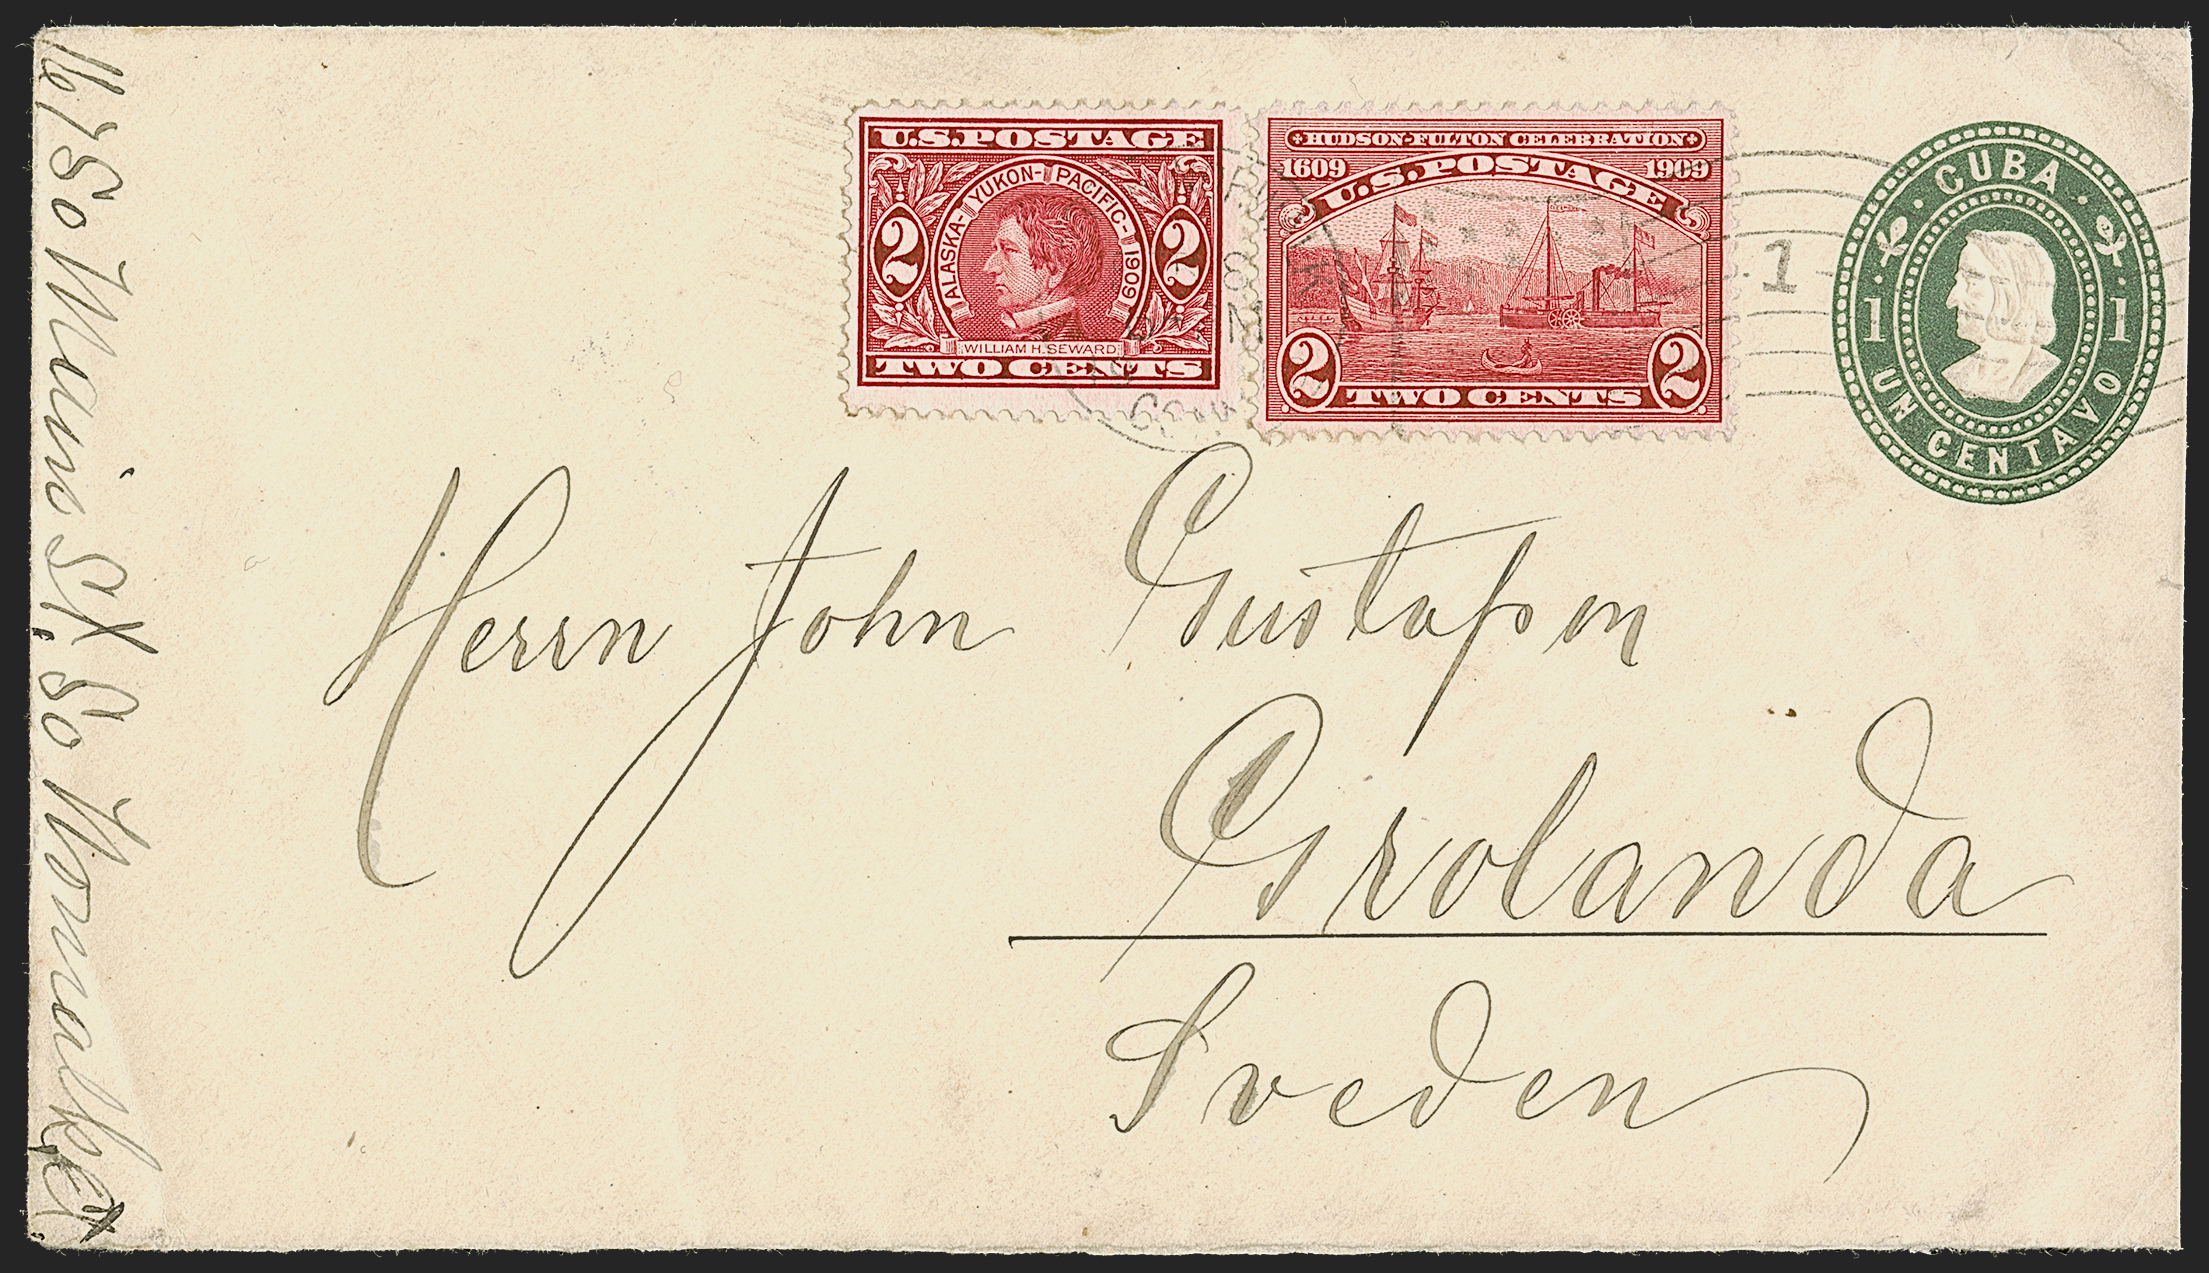 U.S. POSTAGE
ALASKA-YUKON-PACIFIC-1909
2 2
WILLIAM H. SEWARD
TWO CENTS
HUDSON-FULTON CELEBRATION
1609 1909
U.S. POSTAGE
2 2
TWO CENTS
1
CUBA
1 1
UN CENTAVO
Herrn John Gustafson
Grolanda
Sveden
16 & 18 So Main St. So Norwalk, Ct.